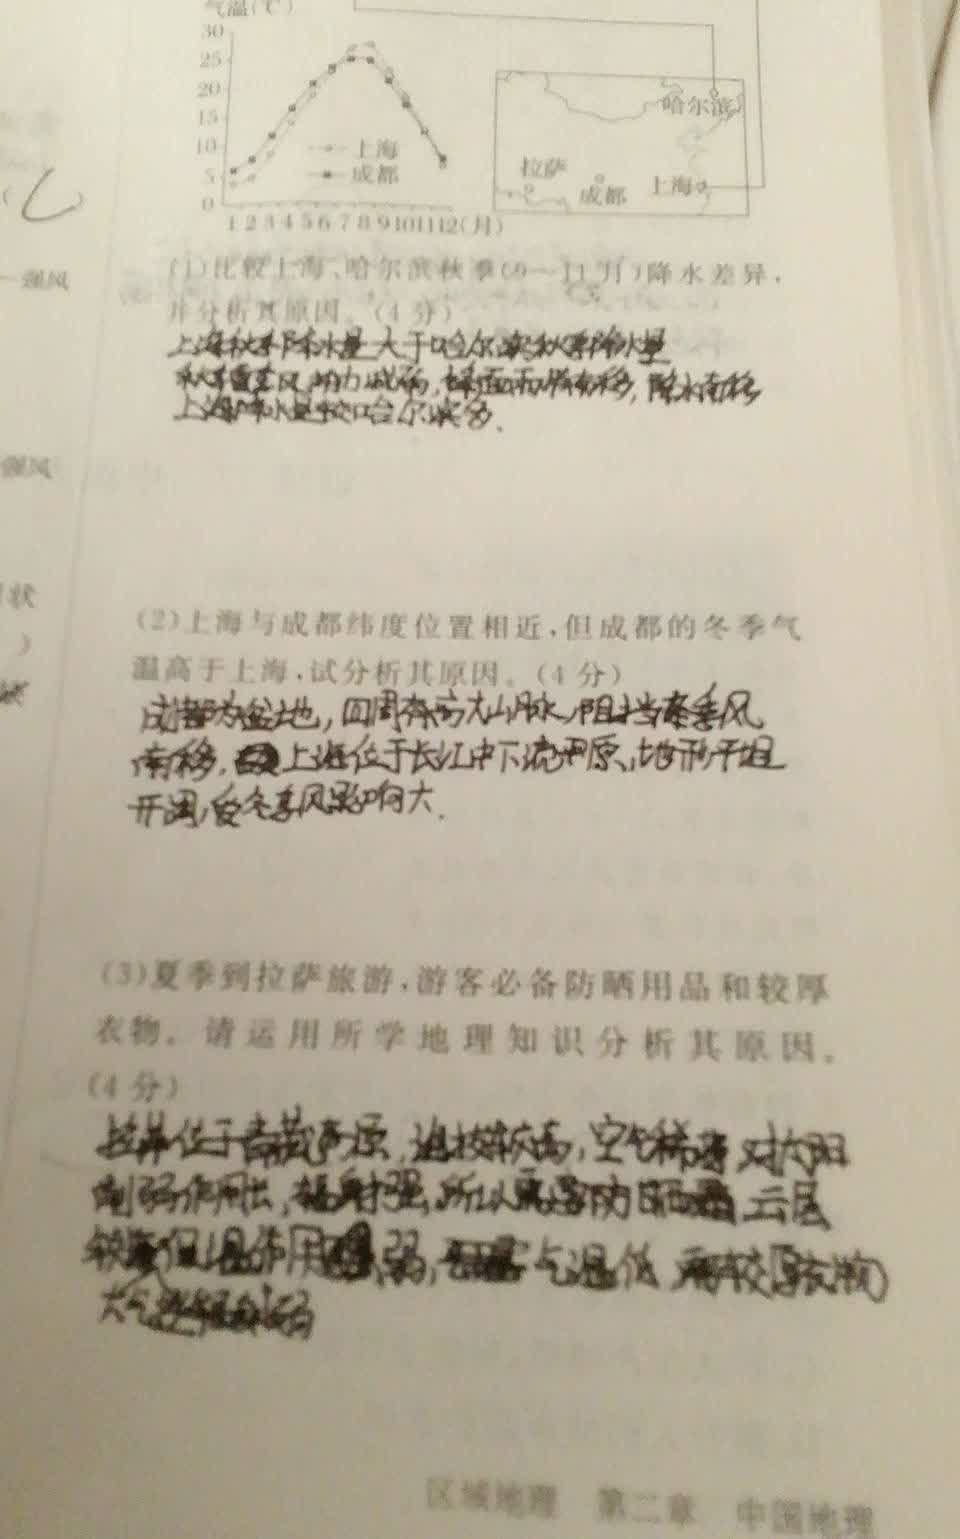 气温(℃)
30
25
20
15
10
5
0
上海
成都
1 2 3 4 5 6 7 8 9 10 11 12(月)
哈尔滨
拉萨
成都
上海
(1)比较上海、哈尔滨秋季(9—11月)降水差异,
并分析其原因。(4分)
上海秋季降水量大于哈尔滨秋季降水量
秋季夏季风势力减弱,锋面雨带南移,降水南移
上海降水量较哈尔滨多.
(2)上海与成都纬度位置相近,但成都的冬季气
温高于上海,试分析其原因。(4分)
成都为盆地,四周有高大山脉,阻挡冬季风
南移,上海位于长江中下流平原,地形平坦
开阔,受冬季风影响大.
(3)夏季到拉萨旅游,游客必备防晒用品和较厚
衣物。请运用所学地理知识分析其原因。
(4分)
拉萨位于青藏高原,海拔较高,空气稀薄,对太阳
削弱作用小,辐射强,所以需要防晒 云层
保温作用弱,气温低,需较厚衣物
大气逆辐射弱
强风
强风
状
)
区域地理 第二章 中国地理